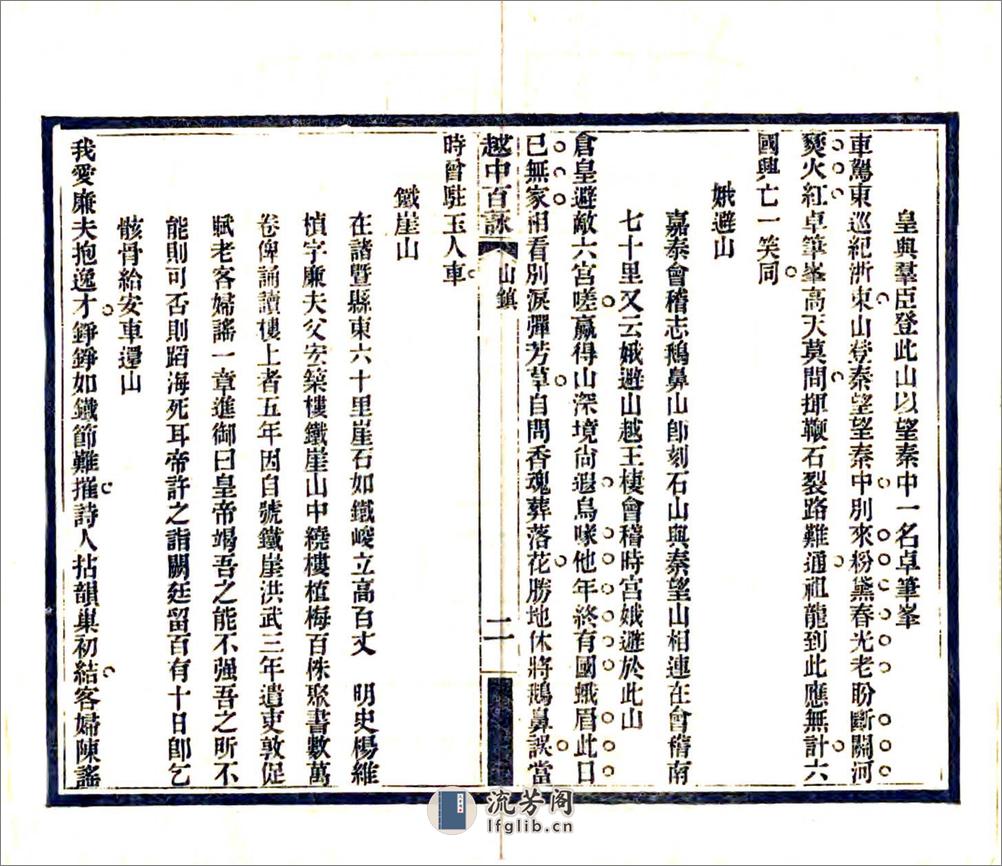 皇與羣臣登此山以望秦中一名卓筆峯
車駕東巡紀浙東山登秦望望秦中別來粉黛春光老盼斷關河
爕火紅卓筆峯高天莫問揮鞭石裂路難通祖龍到此應無計六
國興亡一笑同
娥避山
嘉泰會稽志鵝鼻山卽刻石山與秦望山相連在會稽南
七十里又云娥避山越王棲會稽時宮娥避於此山
倉皇避敵六宮嗟贏得山深境尙遐鳥喙他年終有國蛾眉此日
已無家相看別淚彈芳草自問香魂葬落花勝地休將鵝鼻誤當
越中百詠 山鎮 二
時曾駐玉人車
鐵崖山
在諸暨縣東六十里崖石如鐵峻立高百丈 明史楊維
楨字廉夫父宏築樓鐵崖山中繞樓植梅百株聚書數萬
卷俾誦讀樓上者五年因自號鐵崖洪武三年遣吏敦促
賦老客婦謠一章進御曰皇帝竭吾之能不强吾之所不
能則可否則蹈海死耳帝許之詣闕廷留百有十日卽乞
骸骨給安車還山
我愛廉夫抱逸才錚錚如鐵節難摧詩人拈韻巢初結客婦陳謠
流芳阁
lfglib.cn